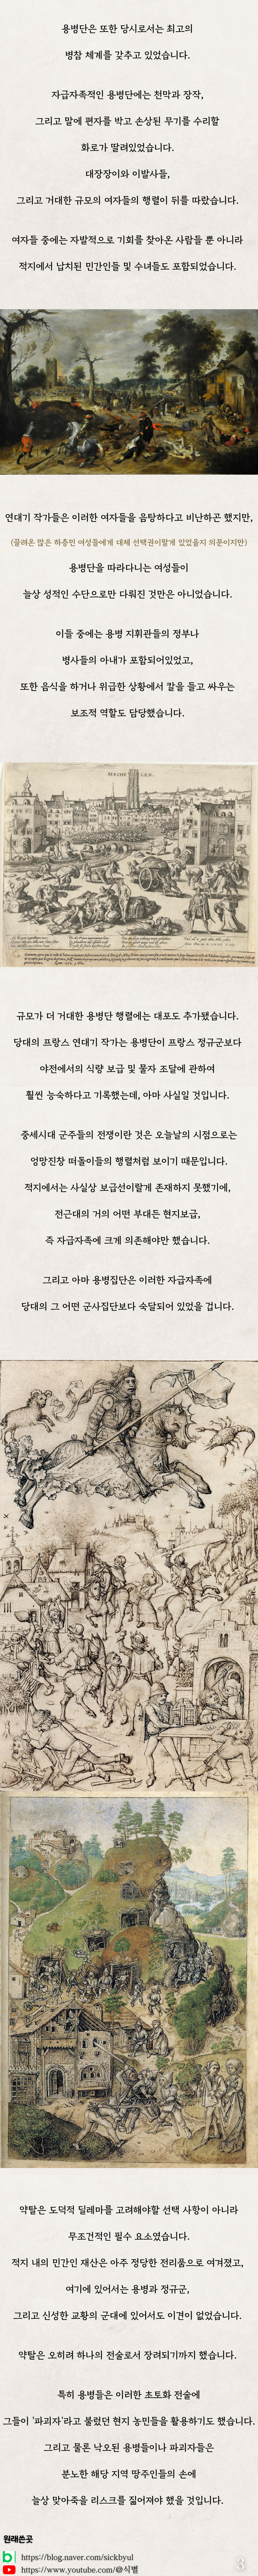 용병단은 또한 당시로서는 최고의
병참 체계를 갖추고 있었습니다.
자급자족적인 용병단에는 천막과 장작,
그리고 말에 편자를 박고 손상된 무기를 수리할
화로가 딸려있었습니다.
대장장이와 이발사들,
그리고 거대한 규모의 여자들의 행렬이 뒤를 따랐습니다.
여자들 중에는 자발적으로 기회를 찾아온 사람들 뿐 아니라
적지에서 납치된 민간인들 및 수녀들도 포함되었습니다.
연대기 작가들은 이러한 여자들을 음탕하다고 비난하곤 했지만,
(끌려온 많은 하층민 여성들에게 대체 선택권이랄게 있었을지 의문이지만)
용병단을 따라다니는 여성들이
늘상 성적인 수단으로만 다뤄진 것만은 아니었습니다.
이들 중에는 용병 지휘관들의 정부나
병사들의 아내가 포함되어있었고,
또한 음식을 하거나 위급한 상황에서 칼을 들고 싸우는
보조적 역할도 담당했습니다.
규모가 더 거대한 용병단 행렬에는 대포도 추가됐습니다.
당대의 프랑스 연대기 작가는 용병단이 프랑스 정규군보다
야전에서의 식량 보급 및 물자 조달에 관하여
훨씬 능숙하다고 기록했는데, 아마 사실일 것입니다.
중세시대 군주들의 전쟁이란 것은 오늘날의 시점으로는
엉망진창 떠돌이들의 행렬처럼 보이기 때문입니다.
적지에서는 사실상 보급선이랄게 존재하지 못했기에,
전근대의 거의 어떤 부대든 현지보급,
즉 자급자족에 크게 의존해야만 했습니다.
그리고 아마 용병집단은 이러한 자급자족에
당대의 그 어떤 군사집단보다 숙달되어 있었을 겁니다.
약탈은 도덕적 딜레마를 고려해야할 선택 사항이 아니라
무조건적인 필수 요소였습니다.
적지 내의 민간인 재산은 아주 정당한 전리품으로 여겨졌고,
여기에 있어서는 용병과 정규군,
그리고 신성한 교황의 군대에 있어서도 이견이 없었습니다.
약탈은 오히려 하나의 전술로서 장려되기까지 했습니다.
특히 용병들은 이러한 초토화 전술에
그들이 '파괴자'라고 불렀던 현지 농민들을 활용하기도 했습니다.
그리고 물론 낙오된 용병들이나 파괴자들은
분노한 해당 지역 땅주인들의 손에
늘상 맞아죽을 리스크를 짊어져야 했을 것입니다.
원래쓴곳
https://blog.naver.com/sickbyul
https://www.youtube.com/@식별
3